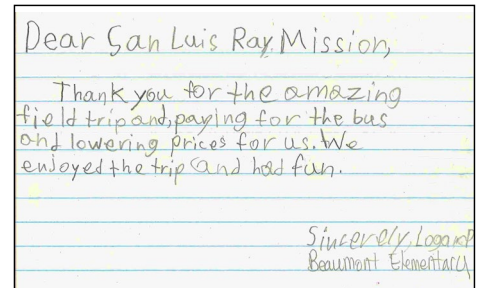 Dear San Luis Ray Mission,
Thank you for the amazing
field trip and, paying for the bus
and lowering prices for us. We
enjoyed the trip and had fun.
Sincerely, Logan
Beaumont Elementary